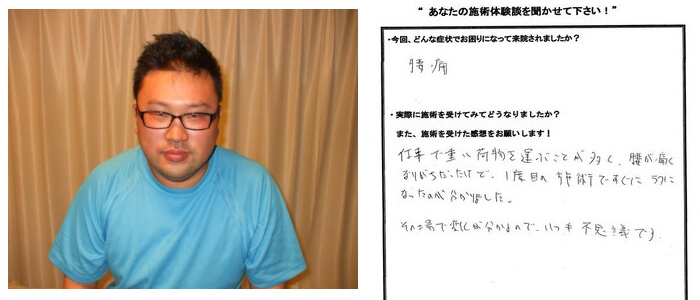 “ あなたの施術体験談を聞かせて下さい！”
・今回、どんな症状でお困りになって来院されましたか？
腰痛
・実際に施術を受けてみてどうなりましたか？
また、施術を受けた感想をお願いします！
仕事で重い荷物を運ぶことが多く、腰が痛く
なりがちだったけど、1度目の施術ですぐに ラクに
なったのが分かりました。
その場で変化が分かるので、いつも 不思議です。